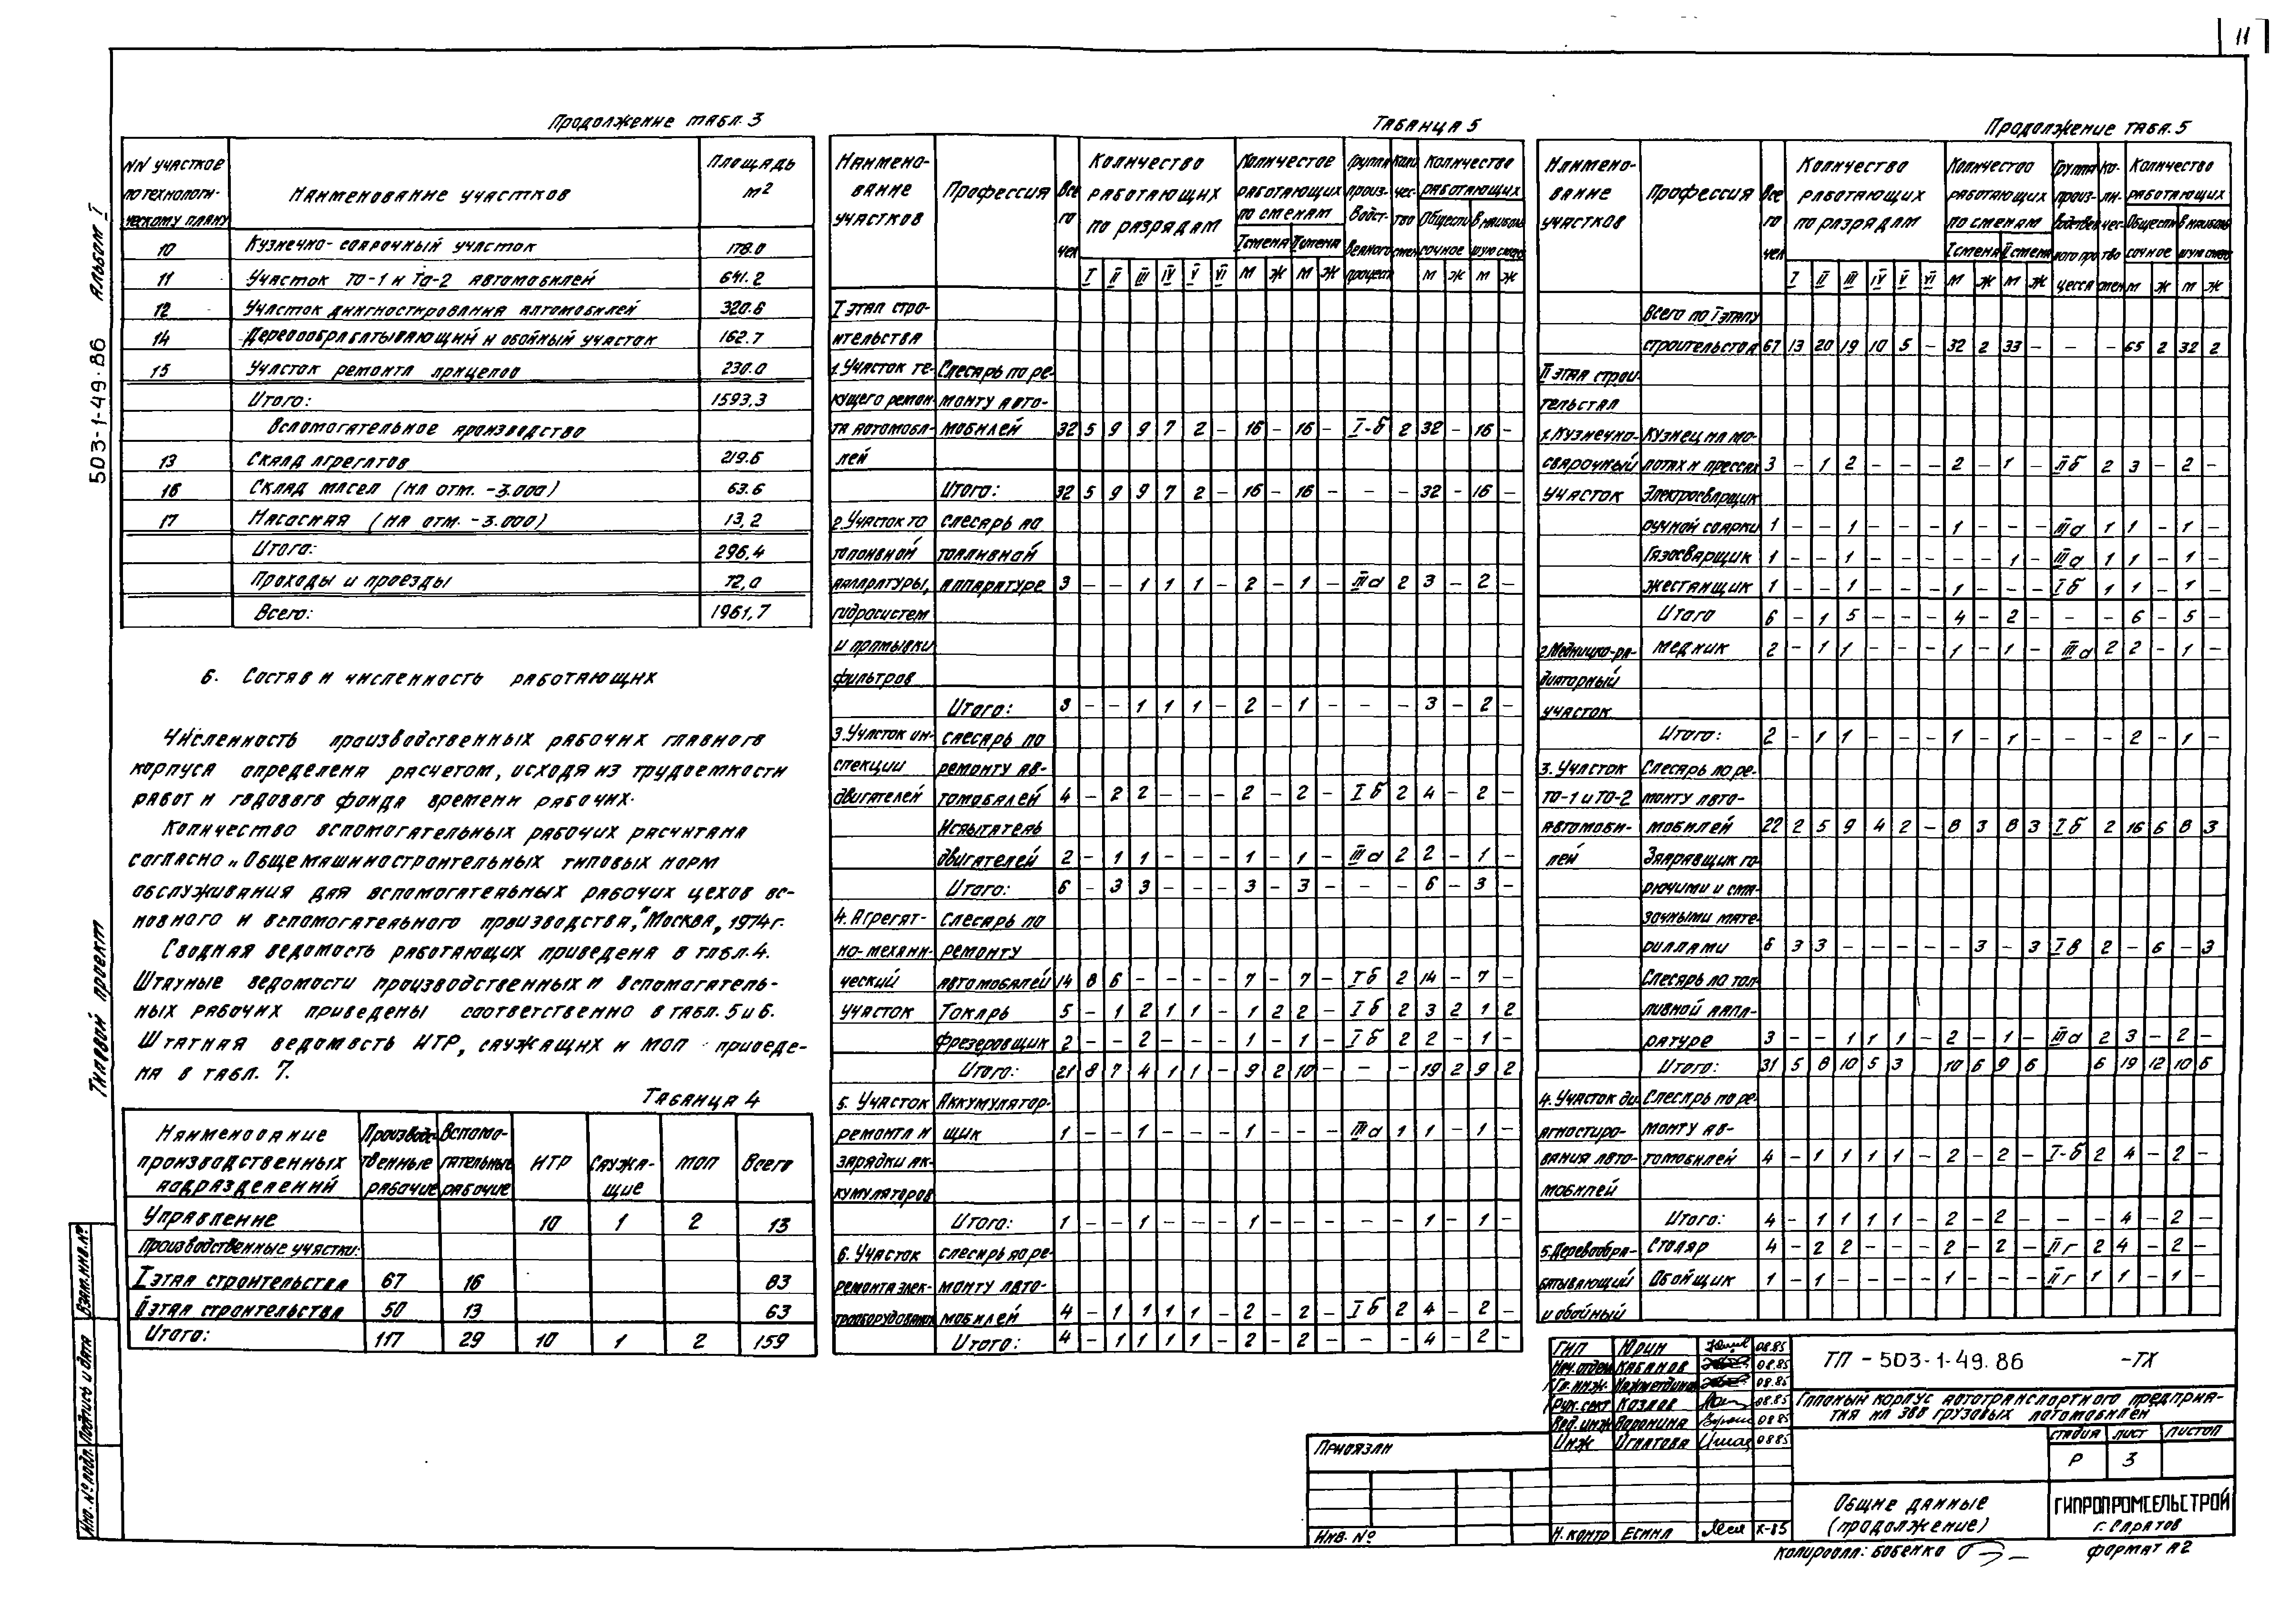 11
Продолжение табл. 3
NN участков по технологическому плану | Наименование участков | Площадь м²
10 | Кузнечно-сварочный участок | 178.0
11 | Участок ТО-1 и ТО-2 автомобилей | 641.2
12 | Участок диагностирования автомобилей | 320.6
14 | Деревообрабатывающий и обойный участок | 162.7
15 | Участок ремонта прицепов | 230.0
Итого: | 1593,3
Вспомогательное производство
13 | Склад агрегатов | 219.6
16 | Склад масел (на отм. -3.000) | 63.6
17 | Насосная (на отм. -3.000) | 13,2
Итого: | 296,4
Проходы и проезды | 72,0
Всего: | 1961,7
6. Состав и численность работающих
Численность производственных рабочих главного
корпуса определена расчетом, исходя из трудоемкости
работ и годового фонда времени рабочих.
Количество вспомогательных рабочих расчитана
согласно „Общемашиностроительных типовых норм
обслуживания для вспомогательных рабочих цехов ос-
новного и вспомогательного производства," Москва, 1974г.
Сводная ведомость работающих приведена в табл. 4.
Штатные ведомости производственных и вспомогатель-
ных рабочих приведены соответственно в табл. 5 и 6.
Штатная ведомость ИТР, служащих и МОП приведе-
на в табл. 7.
Таблица 4
Наименование производственных подразделений | Производственные рабочие | Вспомогательные рабочие | ИТР | Служащие | МОП | Всего
Управление | 10 | 1 | 2 | 13
Производственные участки:
I этап строительства | 67 | 16 | 83
II этап строительства | 50 | 13 | 63
Итого: | 117 | 29 | 10 | 1 | 2 | 159
Таблица 5
Наименование участков | Профессия | Всего чел | Количество работающих по разрядам I II III IV V VI | Количество работающих по сменам I смена М Ж II смена М Ж | Группа производственного процесса | Количество смен | Количество работающих Общесписочное М Ж В наибольшую смену М Ж
I этап стро-
ительства
1. Участок те- Слесарь по ре-
кущего ремон- монту авто-
та автомоби- мобилей 32 5 9 9 7 2 – 16 – 16 – I-б 2 32 – 16 –
лей
Итого: 32 5 9 9 7 2 – 16 – 16 – – – 32 – 16 –
2. Участок то слесарь по
топливной топливной
аппаратуры, аппаратуре 3 – – 1 1 1 – 2 – 1 – III а 2 3 – 2 –
гидросистем
и промывки
фильтров
Итого: 3 – – 1 1 1 – 2 – 1 – – – 3 – 2 –
3. Участок ин- слесарь по
спекции ремонту ав-
двигателей томобилей 4 – 2 2 – – – 2 – 2 – I б 2 4 – 2 –
Испытатель
двигателей 2 – 1 1 – – – 1 – 1 – III а 2 2 – 1 –
Итого: 6 – 3 3 – – – 3 – 3 – – – 6 – 3 –
4. Агрегат- слесарь по
но-механи- ремонту
ческий автомобилей 14 8 6 – – – – 7 – 7 – I б 2 14 – 7 –
участок Токарь 5 – 1 2 1 1 – 1 2 2 – I б 2 3 2 1 2
Фрезеровщик 2 – – 2 – – – 1 – 1 – I б 2 2 – 1 –
Итого: 21 8 7 4 1 1 – 9 2 10 – – – 19 2 9 2
5. Участок Аккумулятор-
ремонта и щик 1 – – 1 – – – 1 – – – III а 1 1 – 1 –
зарядки ак-
кумуляторов
Итого: 1 – – 1 – – – 1 – – – – – 1 – 1 –
6. Участок слесарь по ре-
ремонта элек- монту авто-
трооборудования мобилей 4 – 1 1 1 1 – 2 – 2 – I б 2 4 – 2 –
Итого: 4 – 1 1 1 1 – 2 – 2 – – – 4 – 2 –
Продолжение табл. 5
Наименование участков | Профессия | Всего чел | Количество работающих по разрядам I II III IV V VI | Количество работающих по сменам I смена М Ж II смена М Ж | Группа производственного процесса | Количество смен | Количество работающих Общесписочное М Ж В наибольшую смену М Ж
Всего по I этапу
строительства 67 13 20 19 10 5 – 32 2 33 – – – 65 2 32 2
II этап строи-
тельства
1. Кузнечно- Кузнец на мо-
сварочный лотах и прессах 3 – 1 2 – – – 2 – 1 – II б 2 3 – 2 –
участок Электросварщик
ручной сварки 1 – – 1 – – – 1 – – – III а 1 1 – 1 –
Газосварщик 1 – – 1 – – – – – 1 – III а 1 1 – 1 –
жестянщик 1 – – 1 – – – 1 – – – I б 1 1 – 1 –
Итого 6 – 1 5 – – – 4 – 2 – – – 6 – 5 –
2. Медницко-ра- медник 2 – 1 1 – – – 1 – 1 – III а 2 2 – 1 –
диаторный
участок
Итого: 2 – 1 1 – – – 1 – 1 – – – 2 – 1 –
3. Участок Слесарь по ре-
ТО-1 и ТО-2 монту авто-
автомоби- мобилей 22 2 5 9 4 2 – 8 3 8 3 I б 2 16 6 8 3
лей Заправщик го-
рючими и сма-
зочными мате-
риалами 6 3 3 – – – – – 3 – 3 I в 2 – 6 – 3
Слесарь по топ-
ливной аппа-
ратуре 3 – – 1 1 1 – 2 – 1 – III а 2 3 – 2 –
Итого: 31 5 8 10 5 3 10 6 9 6 6 19 12 10 6
4. Участок ди- Слесарь по ре-
агностиро- монту ав-
вания авто- томобилей 4 – 1 1 1 1 – 2 – 2 – I-б 2 4 – 2 –
мобилей
Итого: 4 – 1 1 1 1 – 2 – 2 – – – 4 – 2 –
5. Деревообра- Столяр 4 – 2 2 – – – 2 – 2 – II г 2 4 – 2 –
батывающий Обойщик 1 – 1 – – – – 1 – – – II г 1 1 – 1 –
и обойный
ГИП Юрин 08.85
Нач. отдела Кабанов 08.85
Гл. инж. 08.85
Рук. сект Козлов 08.85
Вед. инж Воронина 08.85
Инж Игнатова 08.85
Н. контр Есина X-85
ТП - 503-1-49.86 -ТХ
Главный корпус автотранспортного предприя-
тия на 300 грузовых автомобилей
стадия лист листов
Р 3
Общие данные
(продолжение)
ГИПРОПРОМСЕЛЬСТРОЙ
г. Саратов
Привязан
Инв. №
Копировал: Бабенко
формат А2
Типовой проект 503-1-49.86 Альбом I
Инв. № подл. Подпись и дата Взам. инв. №